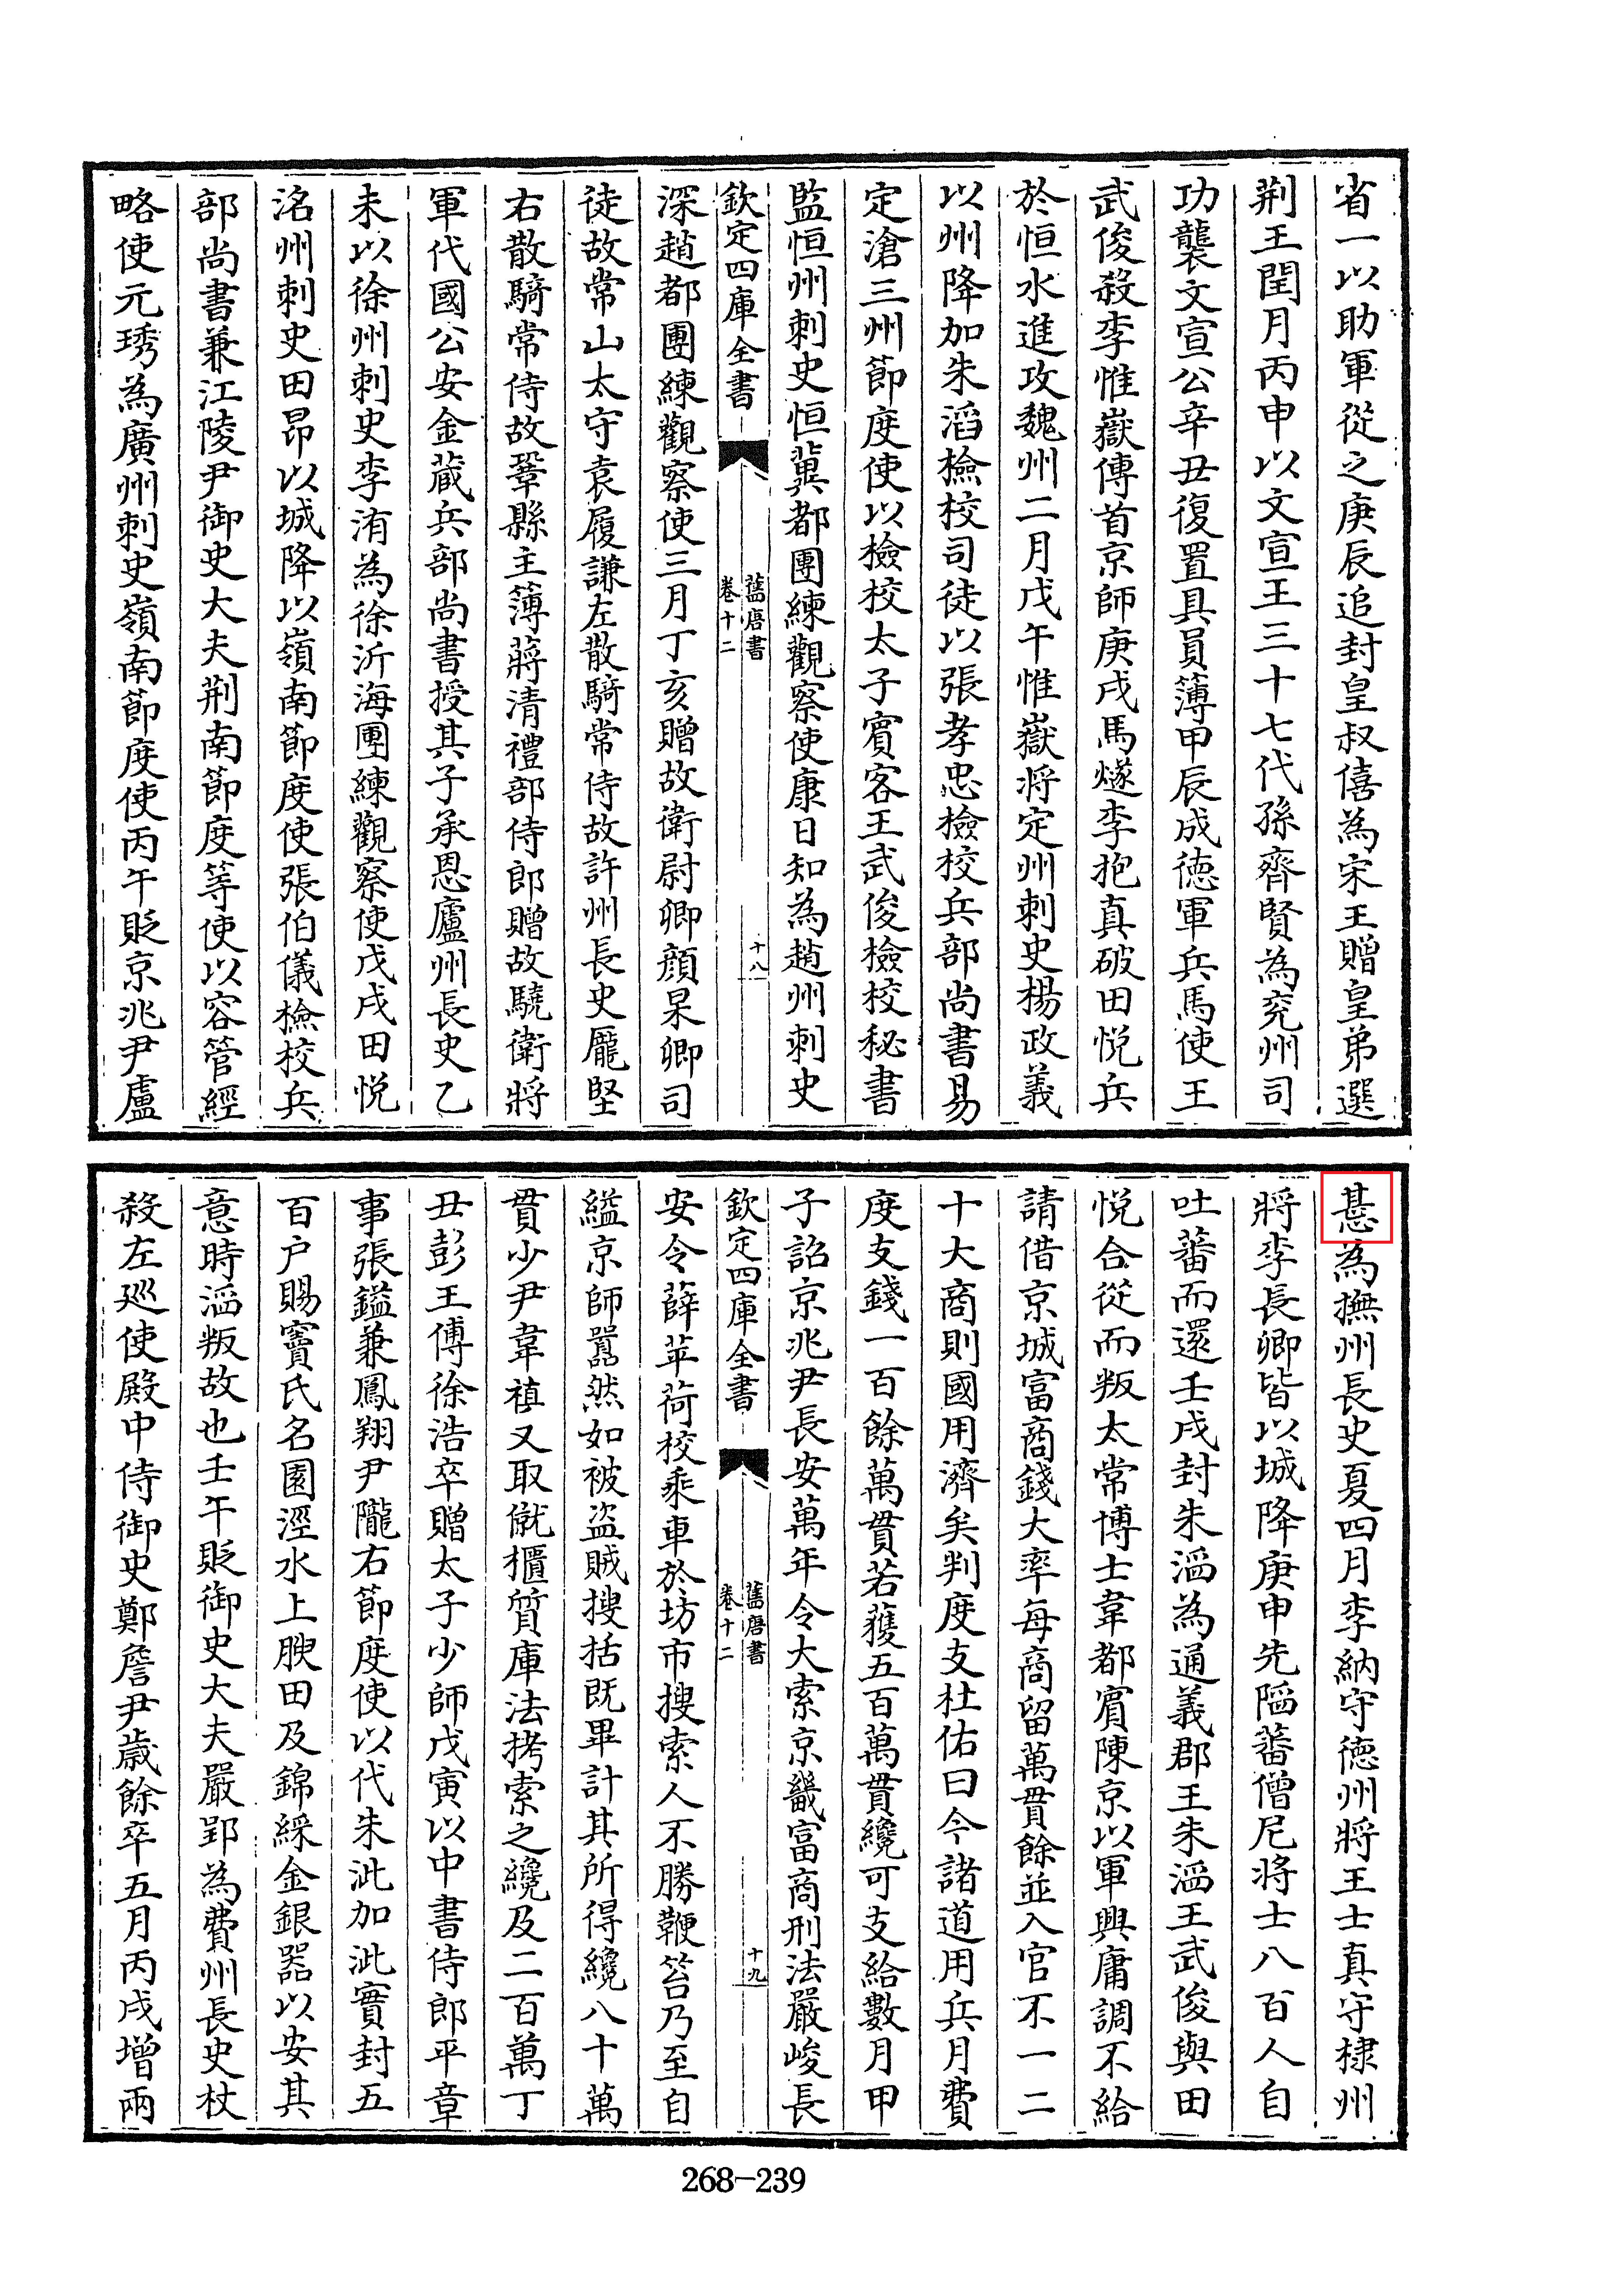 省一以助軍從之庚辰追封皇叔僖為宋王贈皇弟選
荆王閏月丙申以文宣王三十七代孫齊賢為兖州司
功襲文宣公辛丑復置具員簿甲辰成徳軍兵馬使王
武俊殺李惟嶽傳首京師庚戌馬燧李抱真破田悦兵
於恒水進攻魏州二月戊午惟嶽将定州刺史楊政義
以州降加朱滔檢校司徒以張孝忠檢校兵部尚書易
定滄三州節度使以檢校太子賓客王武俊檢校秘書
監恒州刺史恒冀都團練觀察使康日知為趙州刺史
欽定四庫全書
舊唐書
卷十二
十八
深趙都團練觀察使三月丁亥贈故衛尉卿顔杲卿司
徒故常山太守袁履謙左散騎常侍故許州長史龎堅
右散騎常侍故鞏縣主簿蔣清禮部侍郎贈故驍衛將
軍代國公安金蔵兵部尚書授其子承恩廬州長史乙
未以徐州刺史李洧為徐沂海團練觀察使戊戌田悦
洺州刺史田昂以城降以嶺南節度使張伯儀檢校兵
部尚書兼江陵尹御史大夫荆南節度等使以容管經
略使元琇為廣州刺史嶺南節度使丙午貶京兆尹盧
惎為撫州長史夏四月李納守徳州將王士真守棣州
將李長卿皆以城降庚申先陷蕃僧尼将士八百人自
吐蕃而還壬戌封朱滔為通義郡王朱滔王武俊與田
悦合從而叛太常博士韋都賓陳京以軍興庸調不給
請借京城富商錢大率每商留萬貫餘並入官不一二
十大商則國用濟矣判度支杜佑曰今諸道用兵月費
度支錢一百餘萬貫若獲五百萬貫纔可支給數月甲
子詔京兆尹長安萬年令大索京畿富商刑法嚴峻長
欽定四庫全書
舊唐書
卷十二
十九
安令薛苹荷校乘車於坊市搜索人不勝鞭笞乃至自
縊京師囂然如被盗賊搜括既畢計其所得纔八十萬
貫少尹韋禛又取僦櫃質庫法拷索之纔及二百萬丁
丑彭王傅徐浩卒贈太子少師戊寅以中書侍郎平章
事張鎰兼鳳翔尹隴右節度使以代朱泚加泚實封五
百户賜竇氏名園涇水上腴田及錦綵金銀器以安其
意時滔叛故也壬午貶御史大夫嚴郢為費州長史杖
殺左廵使殿中侍御史鄭詹尹歲餘卒五月丙戌増兩
268-239